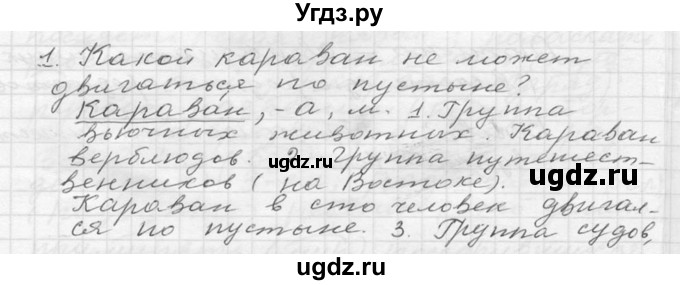 Угдз.ру
1. Какой караван не может
двигаться по пустыне?
Караван, -а, м. 1. Группа
вьючных животных. Караван
верблюдов. 2. Группа путешест-
венников (на Востоке).
Караван в сто человек двигал-
ся по пустыне. 3. Группа судов,
ugdz.ru
ugdz.ru
ugdz.ru
ugdz.ru
ugdz.ru